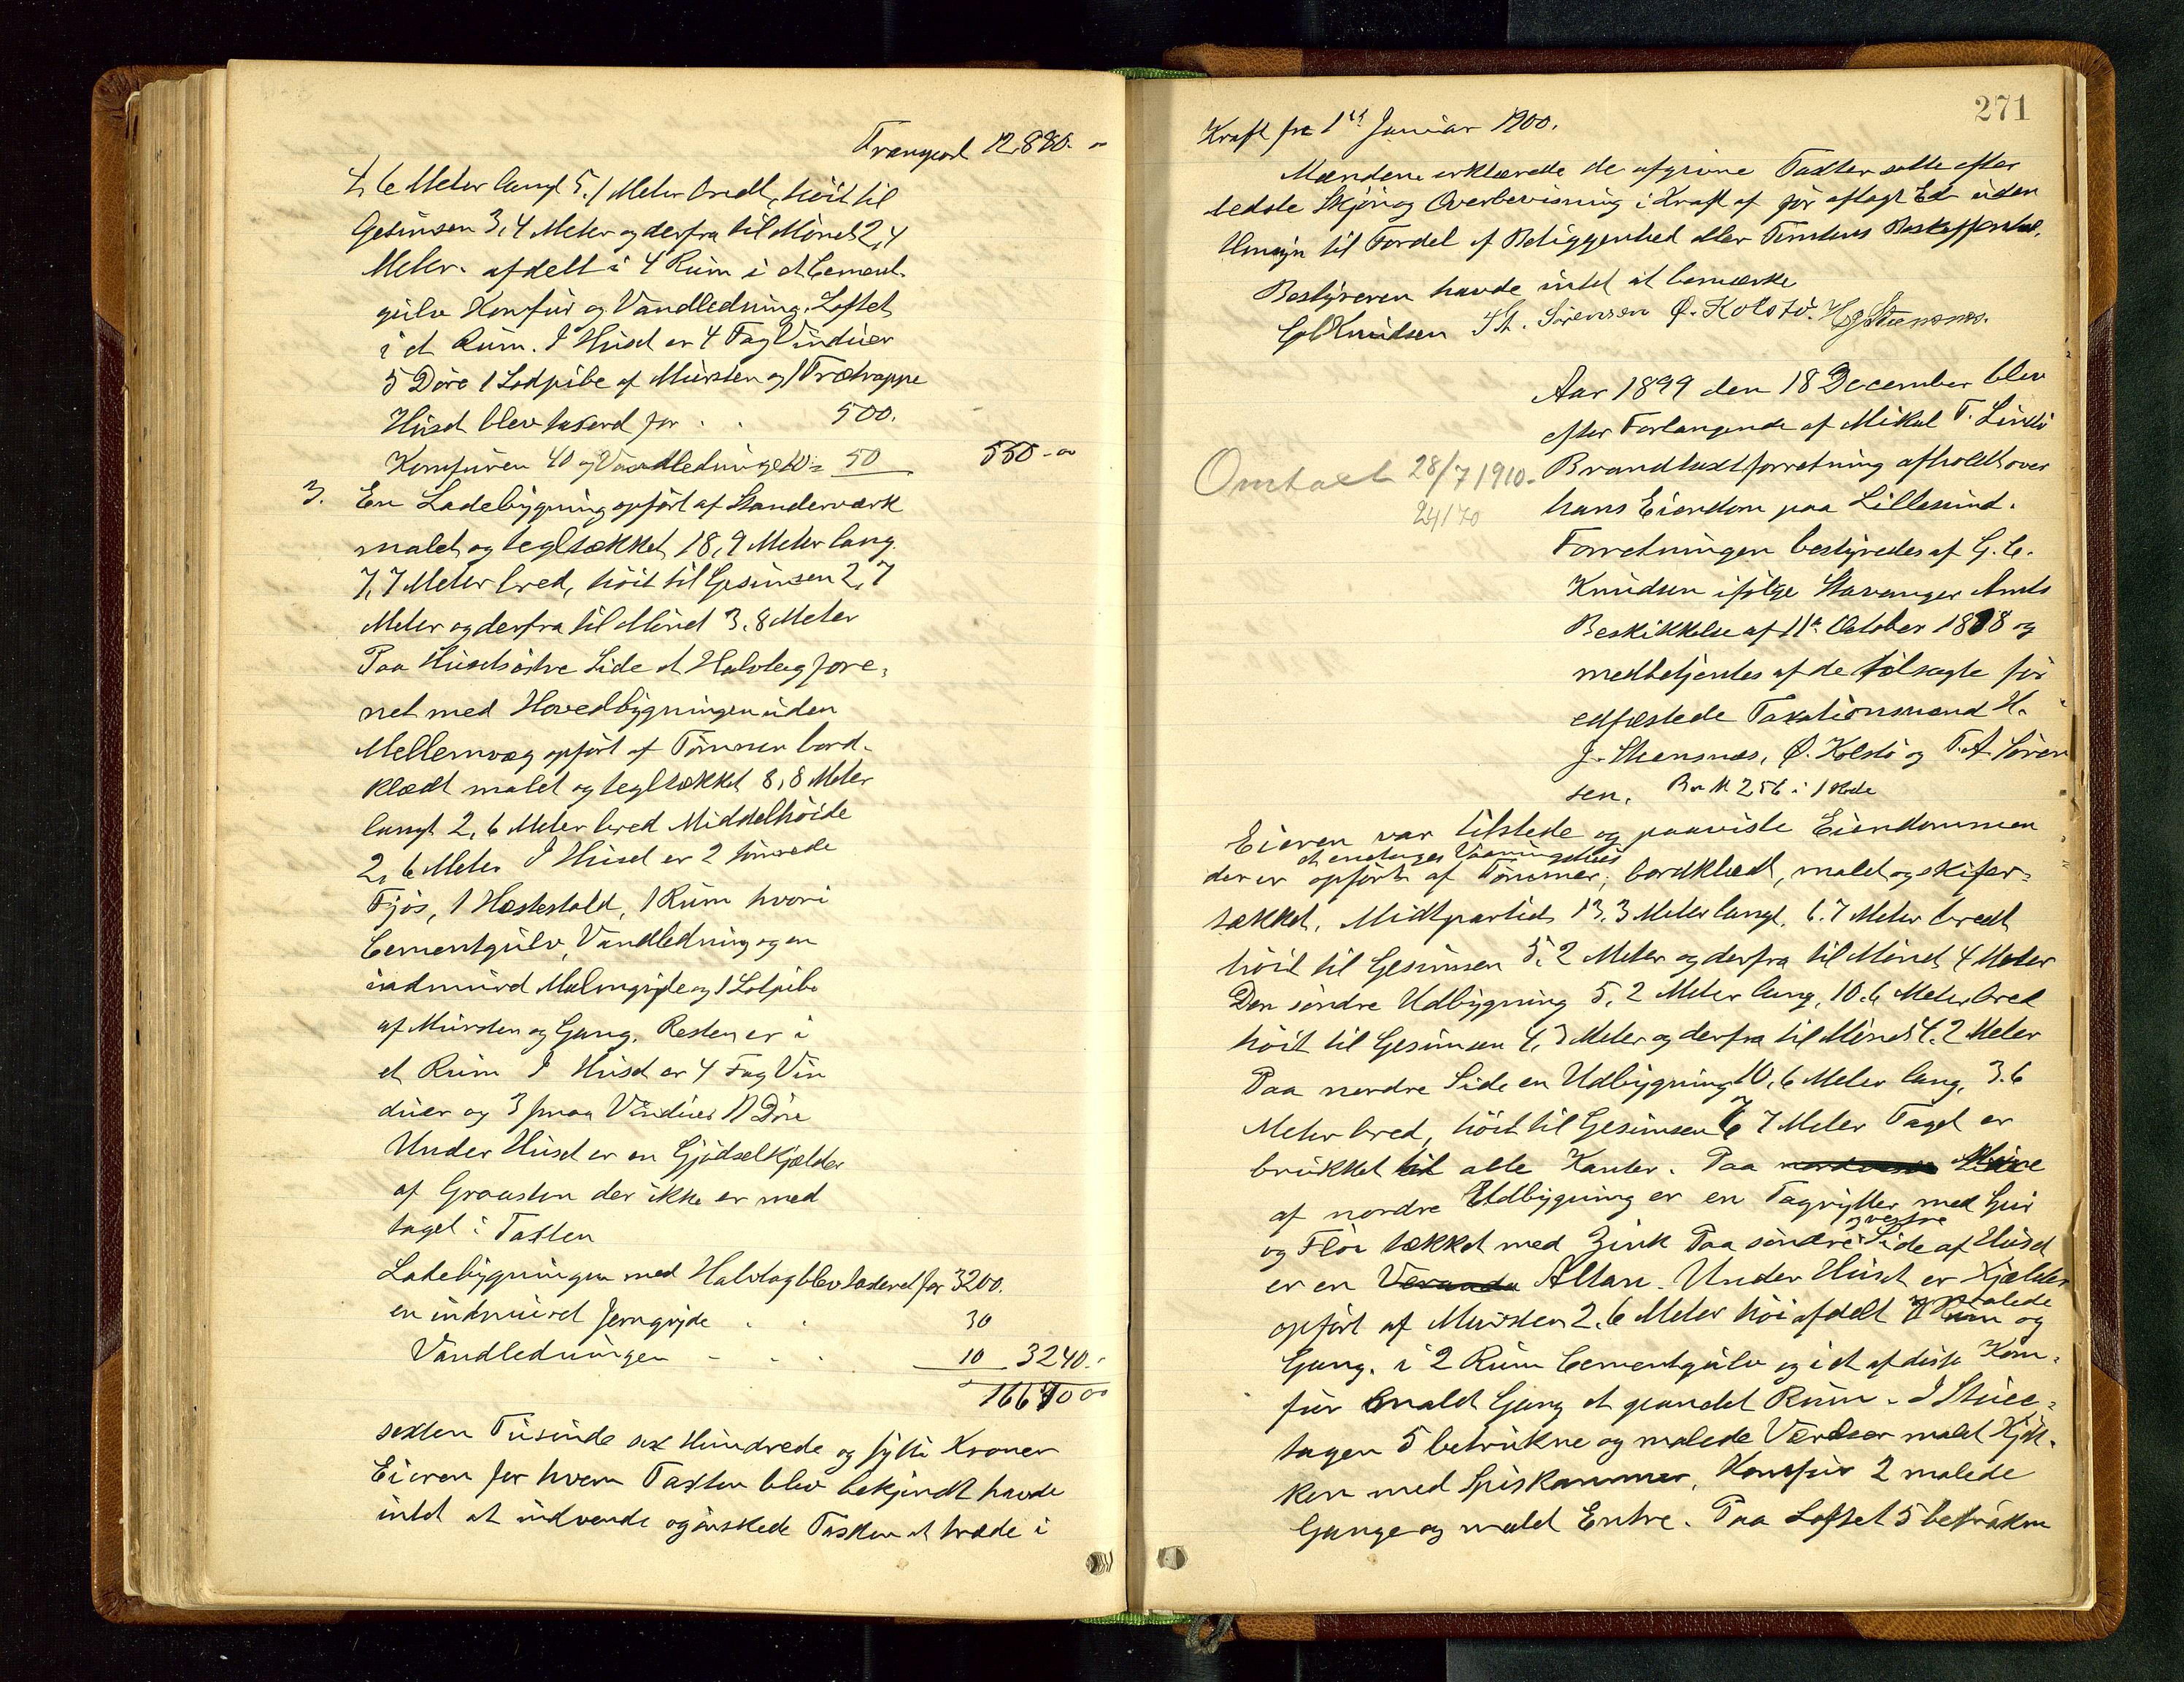 Transport 12,880. -
4,6 Meter langt 5.1 Meter bredt, höit til
Gesimsen 3,4 Meter og derfra til Mönet 2,4
Meter. afdelt i 4 Rum i et Cement-
gulv Komfur og Vandledning. Loftet
i et Rum. I Huset er 4 Fag Vinduer
5 Döre 1 Lodpibe af Mursten og 1 Trætrappe
Huset blev taxerd for . . 500.
Komfuren 40 og Vandledningen 10 = 50 550-00
3. En Ladebygning opfört af Standerværk
malet og tegltækket 18,9 Meter lang
7,7 Meter bred, höit til Gesimsen 2,7
Meter og derfra til Mönet 3.8 Meter
Paa Husets östre Side et Halvtag fore-
net med Hovedbygningen uden
Mellemvæg opfört af Tömmer bord-
klædt malet og tegltækket 8,8 Meter
langt 2,6 Meter bred Middelhöide
2,6 Meter I Huset er 2 tömrede
Fjös, 1 Hestestald, 1 Rum hvori
Cementgulv, Vandledning og en
indmured Malmgryde og 1 Lodpibe
af Mursten og Gang. Resten er i
et Rum I Huset er 4 Fag Vin
duer og 3 smaa Vinduer 11 Döre
Under Huset er en Gjödselkjelder
af Graasten der ikke er med
taget i Taxten
Ladebygningen med Halvtag blev taxeret for 3200.
en indmuret Jerngryde . . 30
Vandledningen - . . 10 3240.-
16670 00
sexten Tusinde sex Hundrede og sytti Kroner
Eieren for hvem Taxten blev bekjendt havde
intet at indvende og önskede Taxten at træde i
271
Kraft fra 1ste Januar 1900.
Mændene erklærede de afgivne Taxter satte efter
bedste Skjön og Overbevisning i Kraft af för aflagt Ed uden
Hensyn til Fordel af Beliggenhed eller Tomtens Beskaffenhed.
Bestyreren havde intet at bemærke
Knudsen Sörensen Ö. Kolstö. H J Steensnæs.
Aar 1899 den 18 December blev
efter Forlangende af Mikal T. Lindö
Brandtaxtforretning afholdt over
hans Eiendom paa Lillesund.
Forretningen bestyredes af G. C.
Knudsen ifölge Stavanger Amts
Beskikkelse af 11te October 1888 og
medbetjentes af de tilsagte för
edfæstede Taxationsmænd H.
J. Steensnæs, Ö. Kolstö og T. A. Sören
sen. Br N 256 i 1 Rode
Omtaxt 28/7 1910.
24/70
Eieren var tilstede og paaviste Eiendommen
et enetages Vaaningshus
der er opfört af Tömmer, bordklædt, malet og skifer-
tækket. Midtpartiet 13.3 Meter langt. 6.7 Meter bredt
höit til Gesimsen 5,2 Meter og derfra til Mönet 4 Meter
Den söndre Udbygning 5,2 Meter lang, 10.6 Meter bred
höit til Gesimsen 4,3 Meter og derfra til Mönet 4.2 Meter
Paa nordre Side en Udbygning 10,6 Meter lang, 3.6
Meter bred, höit til Gesimsen 7 Meter Taget er
brukket til alle Kanter. Paa Möne
af nordre Udbygning er en Tagrytter med Spir
og vestre
og Flöi tækket med Zink Paa söndre Side af Huset
er en Veranda Altan. Under Huset er Kjelder
malede
opfört af Mursten 2.6 Meter höi afdelt Rum og
Gang. i 2 Rum Cementgulv og i et af disse Kom-
fur malet Gang et pandet Rum. I Stuee-
tagen 5 betrukne og malede Værelser malet Kjök-
ken med Spiskammer, Komfur 2 malede
Gange og malet Entre. Paa Loftet 5 betrukne